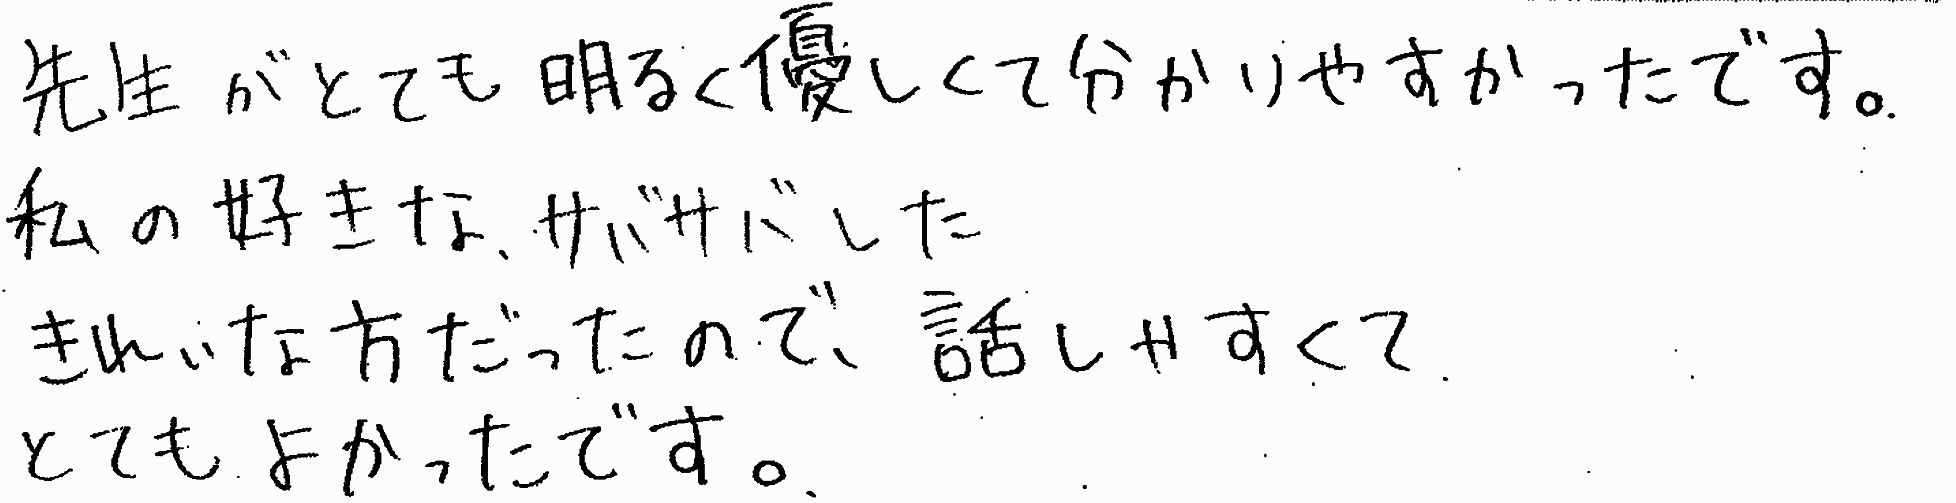 先生がとても明るく優しくて分かりやすかったです。
私の好きな、サバサバした
きれいな方だったので、話しやすくて
とてもよかったです。